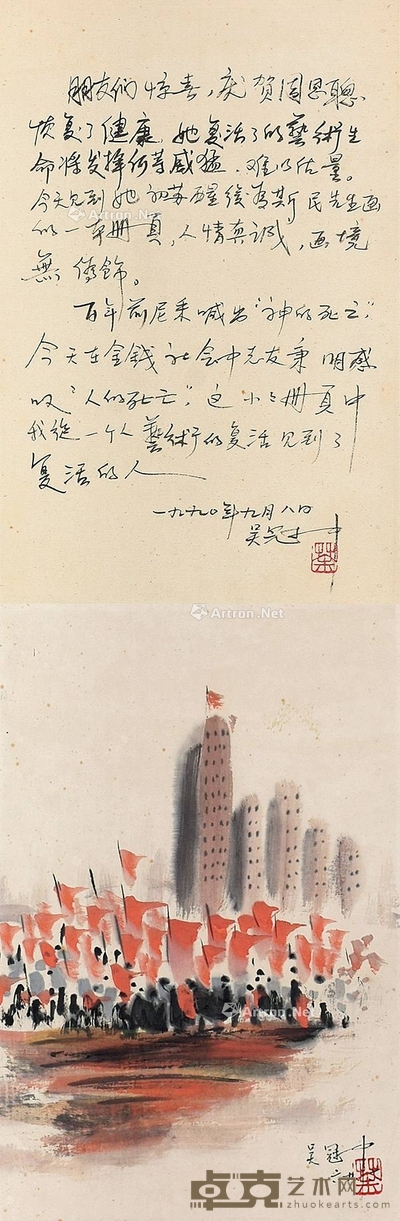 朋友们惊喜，庆贺周思聪
恢复了健康，她复活了的藝術生
命将发挥何等威猛，难以估量。
今天见到她初苏醒後为斯民先生画
的一本册頁，人情真诚，画境
無修饰。
百年前尼采喊出“神的死亡”，
今天在金錢社会中志友秉明感
叹“人的死亡”，这小小册頁中
我從一个人藝術的复活见到了
复活的人
一九九〇年九月八日
吴冠中
荼
Artron.Net
Artron.Net
吴冠中
荼
卓克艺术网
www.zhuokearts.com